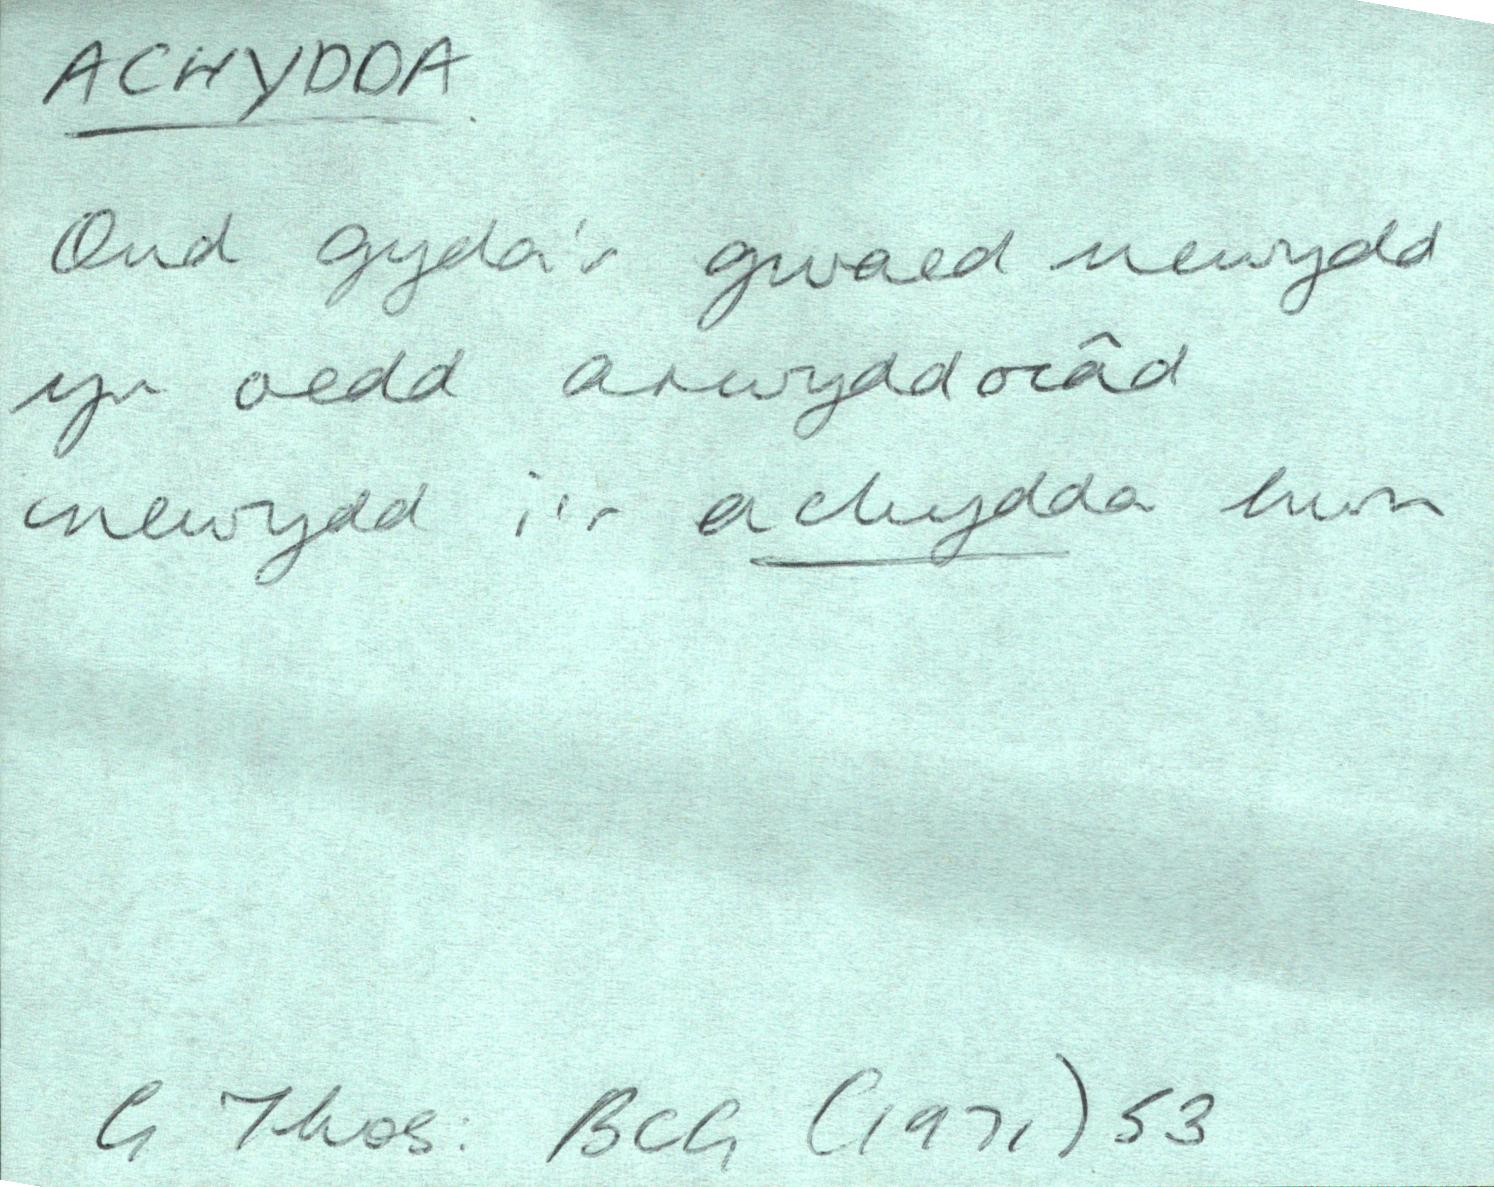 ACHYDDA
Ond gyda'r gwaed newydd
yr oedd arwyddocâd
newydd i'r achydda hwn
G Thos: BCG (1971) 53